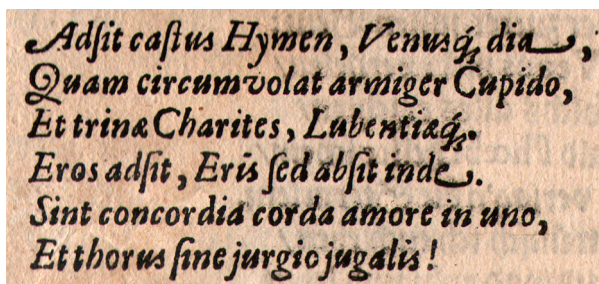 Adſit caſtus Hymen, Venusq́; dia,
Quam circumvolat armiger Cupido,
Et trinæ Charites, Lubentiæq́;.
Eros adſit, Eris ſed abſit inde.
Sint concordia corda amore in uno,
Et thorus ſine jurgio jugalis!